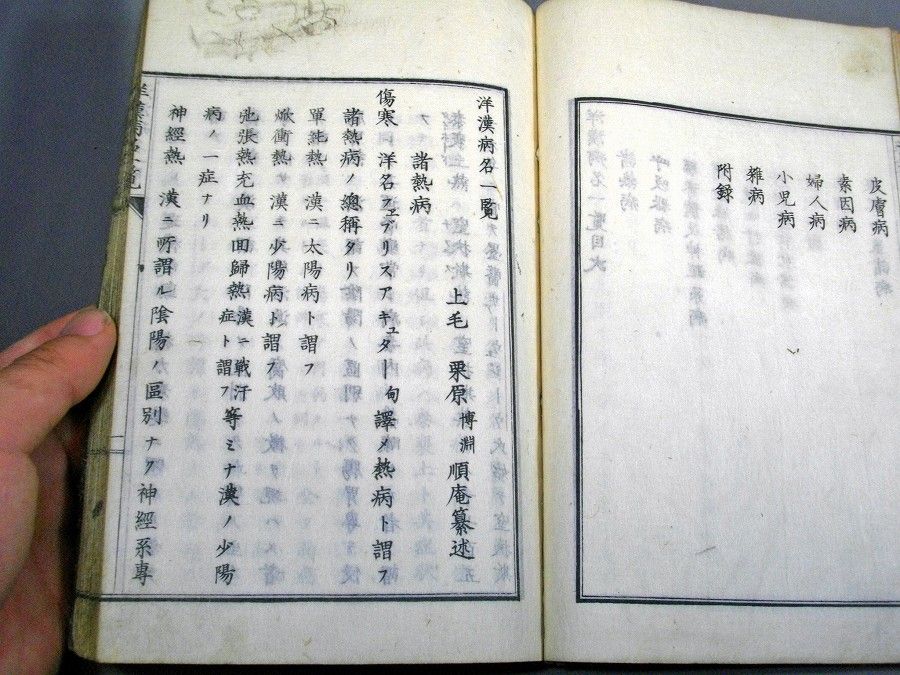 皮膚病
素因病
婦人病
小児病
雜病
附録
洋漢病名一覧
上毛 栗原 博淵 順庵纂述
諸熱病
傷寒 洋名フェブリスアキュター旬譯〆熱病ト謂フ
諸熱病ノ總稱タリ
單純熱 漢ニ太陽病ト謂フ
焮衝熱 漢ニ少陽病ト謂フ
弛張熱充血熱回歸熱症ト謂フ漢ニ戦汗等ミナ漢ノ少陽
病ノ一症ナリ
神經熱 漢ニ所謂ル陰陽ノ區別ナク神經系專